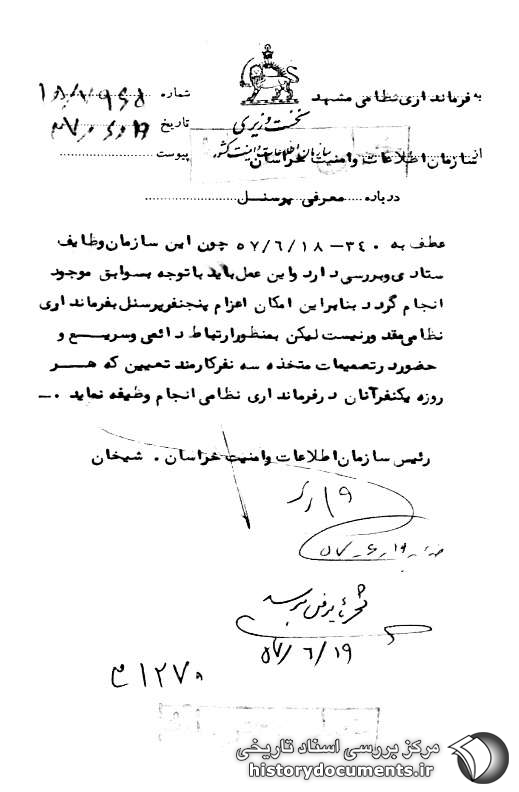 به فرمانداری نظامی مشهد
شماره
نخست وزیری
تاریخ
از سازمان اطلاعات وامنیت خراسان
سازمان اطلاعات و امنیت کشور
پیوست
درباره معرفی پرسنل
عطف به ۳۴۰ – ۵۷/۶/۱۸ چون این سازمان وظایف
ستادی وبررسی دارد واین عمل باید با توجه بسوابق موجود
انجام گردد بنابراین امکان اعزام پنجنفرپرسنل بفرمانداری
نظامی مقدورنیست لیکن بمنظورارتباط دائمی وسریع و
حضوردرتصمیمات متخذه سه نفرکارمند تعیین که هر
روزه یکنفرآنان درفرمانداری نظامی انجام وظیفه نماید .–
رئیس سازمان اطلاعات وامنیت خراسان . شیخان
۵۷-۶-۱۹
۵۷/۶/۱۹
۱۲۷۰
مرکز بررسی اسناد تاریخی
historydocuments.ir